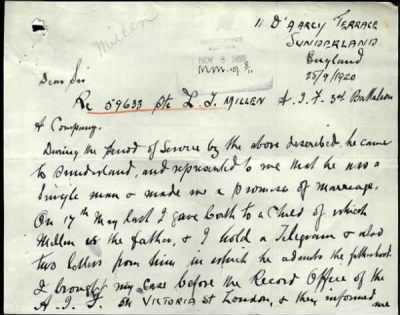 Millen
11 D'Arcy Terrace
Sunderland
England
25/9/1920
NOV 8 1920
Dear Sir
Re 59633 Pte L. J. MILLEN A.I.F 3rd Battalion
A Company.
During the period of Service by the above described, he came
to Sunderland, and represented to me that he was a
Single man & made me a promise of marriage.
On 17th May last I gave birth to a Child of which
Millen is the father, & I hold a Telegram & also
two letters from him in which he admits the fatherhood.
I brought my case before the Record Office of the
A. I. F. in VICTORIA St London, & they informed me